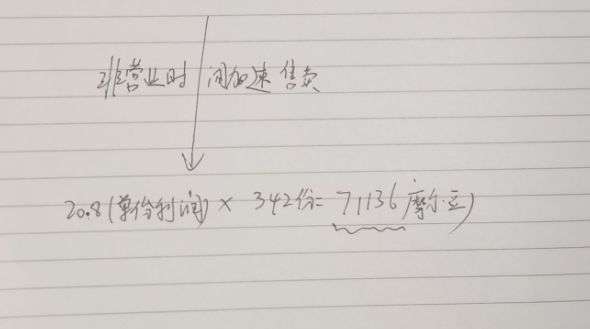 非营业时间加速售卖
20.8(单份利润)× 342份=71136摩尔豆)